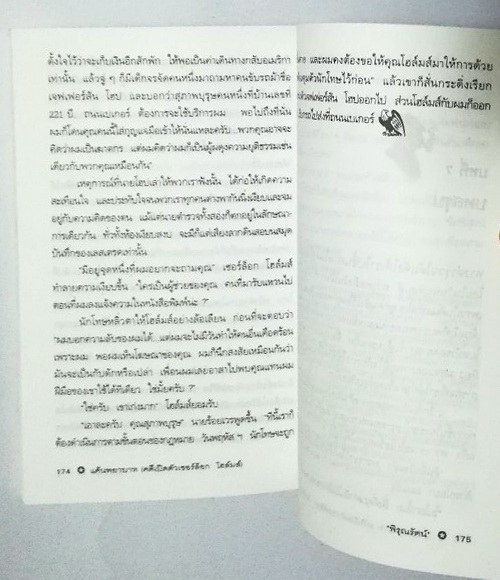 ตั้งใจไว้ว่าจะเก็บเงินอีกสักพัก ให้พอเป็นค่าเดินทางกลับอเมริกา
เท่านั้น แล้วจู่ ๆ ก็มีเด็กจรจัดคนหนึ่งมาถามหาคนขับรถม้าชื่อ
เจฟเฟอร์สัน โฮป และบอกว่าสุภาพบุรุษคนหนึ่งที่บ้านเลขที่
221 บี. ถนนเบเกอร์ ต้องการจะใช้บริการผม พอไปถึงที่นั่น
ผมก็โดนคุณคนนี้ใส่กุญแจมือเข้าให้นั่นแหละครับ พวกคุณอาจจะ
คิดว่าผมเป็นฆาตกร แต่ผมคิดว่าผมก็เป็นผู้ผดุงความยุติธรรมเช่น
เดียวกับพวกคุณเหมือนกัน"
เหตุการณ์ที่นายโฮปเล่าให้พวกเราฟังนั้น ได้ก่อให้เกิดความ
สะเทือนใจ และประทับใจจนพวกเราทุกคนต่างพากันนิ่งเงียบและจม
อยู่กับความคิดของตน แม้แต่นายตำรวจทั้งสองก็ตกอยู่ในลักษณะ-
การเดียวกัน ทั่วทั้งห้องเงียบสงบ จะมีก็แต่เสียงลากดินสอบนสมุด
บันทึกของเลสเตรดเท่านั้น
"มีอยู่จุดหนึ่งที่ผมอยากจะถามคุณ" เชอร์ล็อก โฮล์มส์
ทำลายความเงียบขึ้น "ใครเป็นผู้ช่วยของคุณ คนที่มารับแหวนไป
ตอนที่ผมลงแจ้งความในหนังสือพิมพ์น่ะ ?"
นักโทษหลิ่วตาให้โฮล์มส์อย่างล้อเลียน ก่อนที่จะตอบว่า
"ผมบอกความลับของผมได้ แต่ผมจะไม่มีวันทำให้คนอื่นเดือดร้อน
เพราะผม พอผมเห็นโฆษณาของคุณ ผมก็นึกสงสัยเหมือนกันว่า
มันจะเป็นกับดักหรือเปล่า เพื่อนผมเลยอาสาไปพบคุณแทนผม
ฝีมือของเขาใช้ได้ทีเดียว ใช่มั้ยครับ ?"
"ใช่ครับ เขาเก่งมาก" โฮล์มส์ยอมรับ
"เอาละครับ คุณสุภาพบุรุษ" นายร้อยเวรพูดขึ้น "ทีนี้เราก็
ต้องดำเนินการตามขั้นตอนของกฎหมาย วันพฤหัส ฯ นักโทษจะถูก
174 แค้นพยาบาท (คดีเปิดตัวเชอร์ล็อก โฮล์มส์)
และผมคงต้องขอให้คุณโฮล์มส์มาให้การด้วย
ตัวนักโทษไว้ก่อน" แล้วเขาก็สั่นกระดิ่งเรียก
เจฟเฟอร์สัน โฮปออกไป ส่วนโฮล์มส์กับผมก็ออก
ที่ถนนเบเกอร์
"พิรุณรัตน์" 175